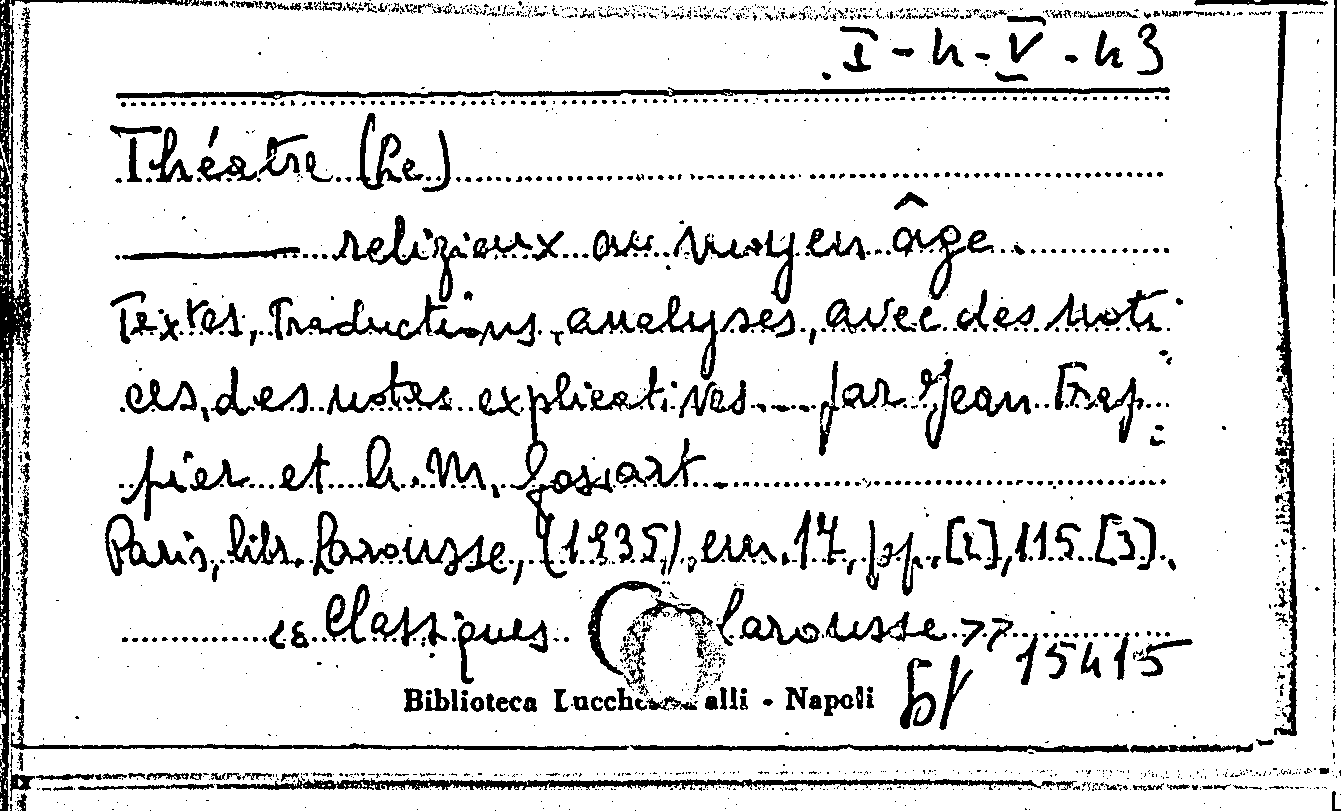 I-4-V-43
Théatre (Le)
religieux au moyen âge.
Textes, traductions, analyses, avec des noti
ces, des notes explicatives... par Jean Frap-
pier et A. M. Gossart.
Paris, libr. Larousse, (1935), cm. 17, pp. [2], 115 [3].
« Classiques larousse »
15415
Biblioteca Lucche alli - Napoli